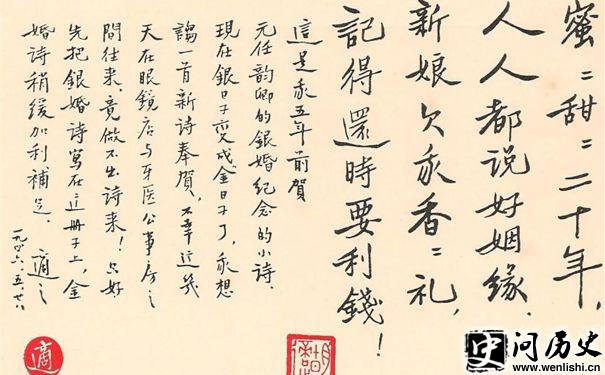 蜜〻甜〻二十年,
人人都说好姻缘.
新娘欠我香〻礼,
記得還時要利錢!
這是我五年前賀
元任韵卿的銀婚紀念的小诗.
現在銀日子变成金日子了,我想
謅一首新诗奉賀,不幸这幾
天在眼镜店与牙医公事房之
間往来,竟做不出诗来!只好
先把銀婚诗寫在这册子上,金
婚诗稍缓加利補足. 適之
一九四六.五.廿八
適
史
问历史
www.wenlishi.cn